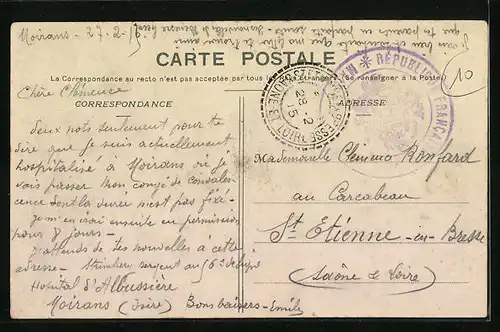 Moirans - 27-2-15
CARTE POSTALE
La Correspondance au recto n'est pas acceptée par tous les pays étrangers (Se renseigner à la Poste)
CORRESPONDANCE
ADRESSE
10
RÉPUBLIQUE FRANÇAISE
28 -2
15
Chère Clémence
Deux mots seulement pour te
dire que je suis actuellement
hospitalisé à Moirans où je
vais passer mon congé de convales-
cence dont la durée n'est pas fixé-
je m'en irai ensuite en permission
pour 8 jours -
J'attends de tes nouvelles a cette
adresse - sergent au
Hopital d'Albussière
Moirans (Isère) Bons baisers - Emile
Mademoiselle Clémence Bonfard
au Carcabeau
St Étienne - en - Bresse
(Saône & Loire)